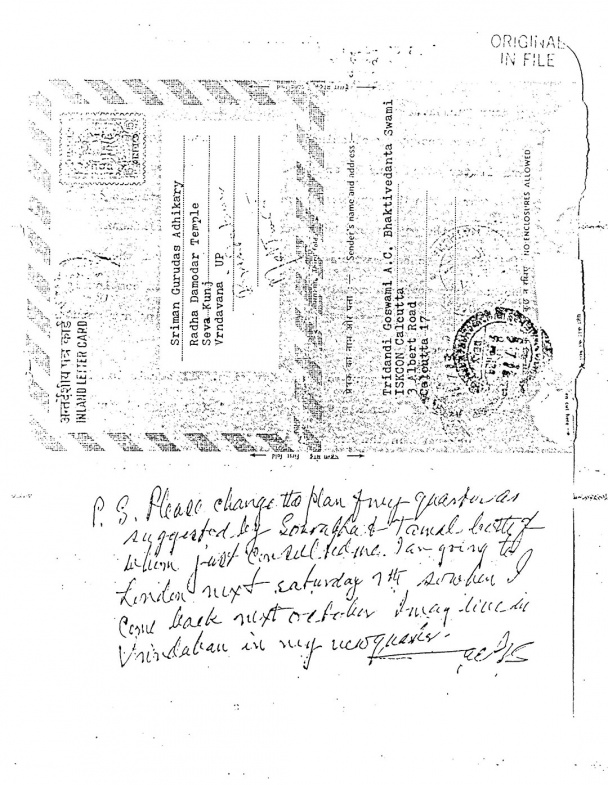 ORIGINAL
IN FILE
अन्तर्देशीय पत्र कार्ड
INLAND LETTER CARD
Sriman Gurudas Adhikary
Radha Damodar Temple
Seva Kunj
Vrndavana UP
Mathura
प्रेषक का नाम और पता :— Sender's name and address :—
Tridandi Goswami A.C. Bhaktivedanta Swami
ISKCON Calcutta
3 Albert Road
Calcutta 17
NO ENCLOSURES ALLOWED
पहला मोड़ First fold
P. S. Please change the plan of my quarter as
suggested by Sourabha & Tamal both of
whom just consulted me. I am going to
London next saturday 7th so when I
Come back next october I may live in
Vrindaban in my new quarter.